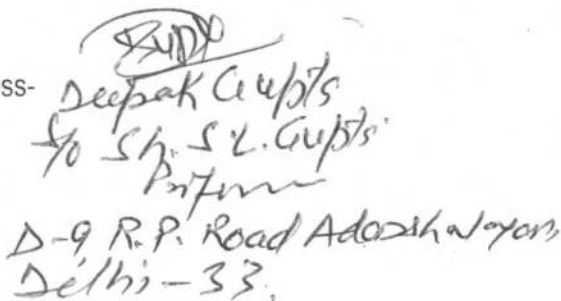 ss-
Deepak Gupta
S/o Sh. S.L. Gupta
D-9 R.P. Road Adarsh Nagar,
Delhi-33.